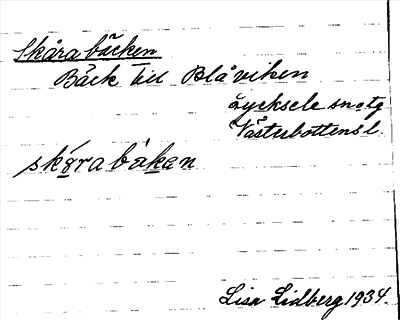 Skårabäcken
Bäck till Blåviken
Lycksele snstg
Västerbottens l.
skǫ́ra bǻkan
Lisa Lidberg 1934.